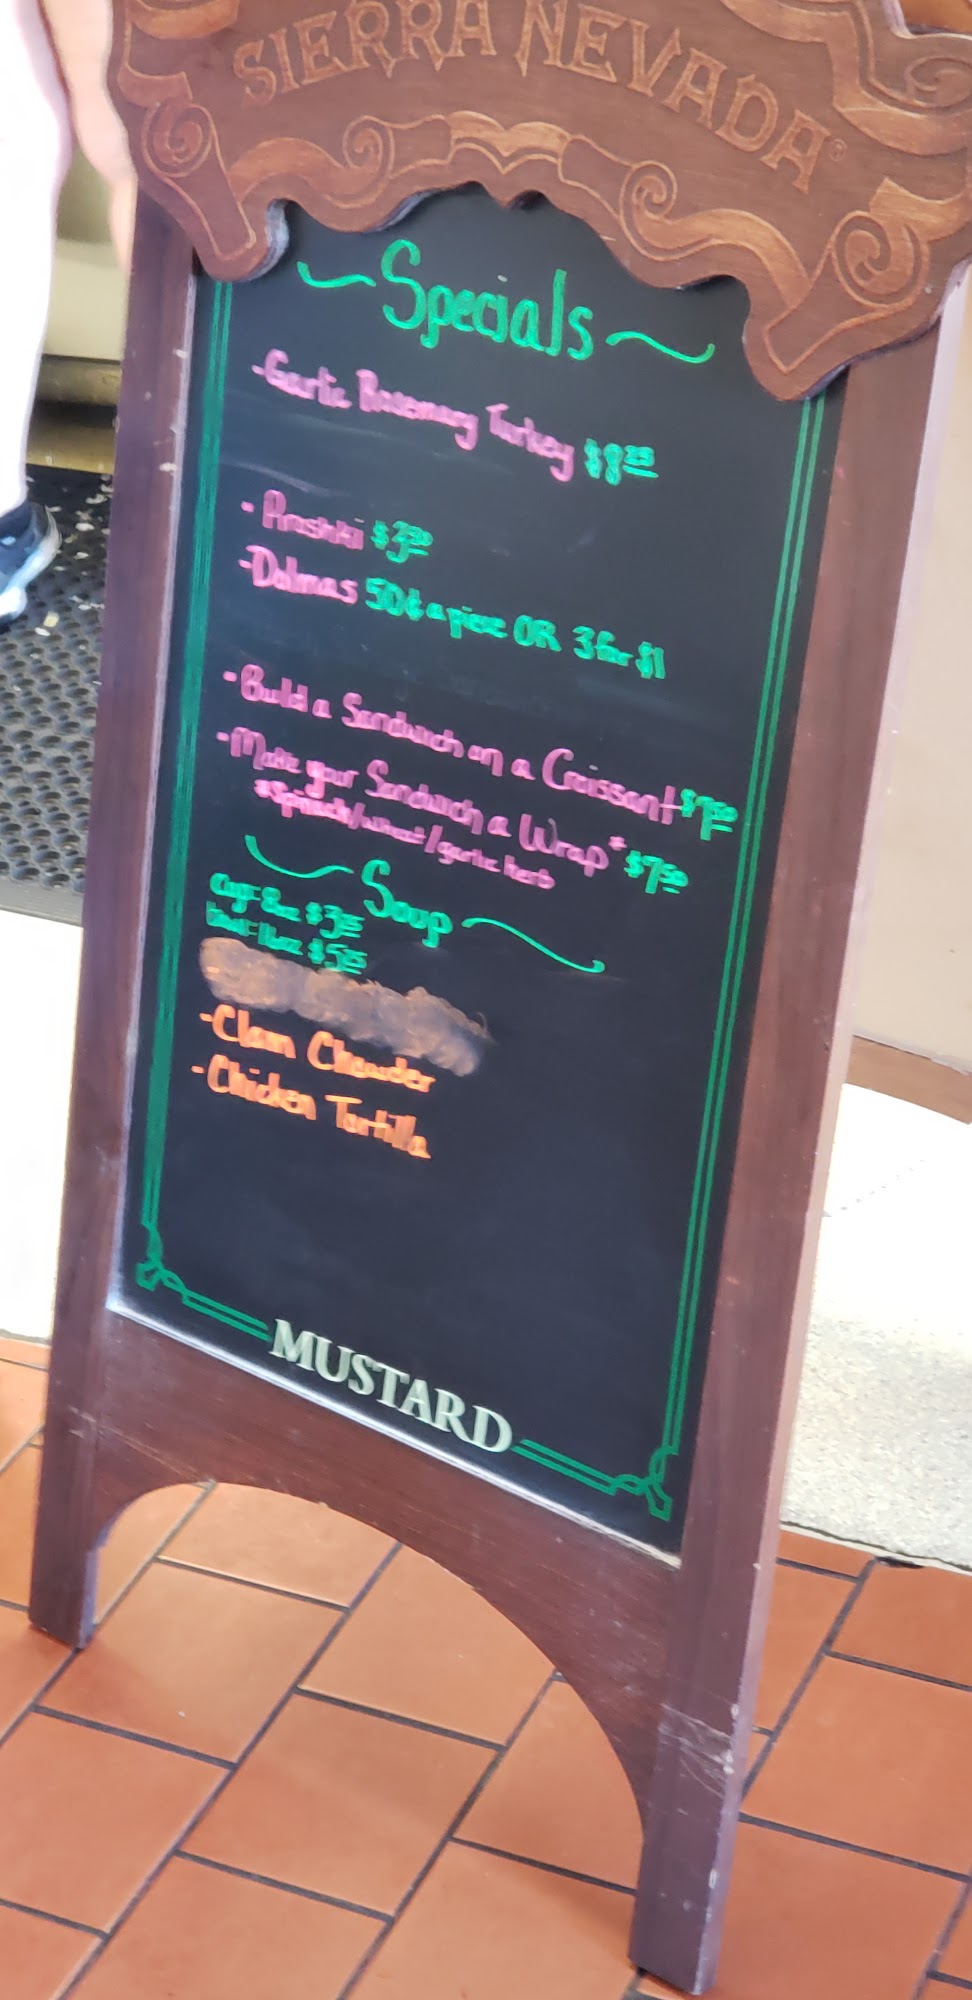 SIERRA NEVADA®
Specials
- Garlic Rosemary Turkey $8.25
- Piroshki $3.50
- Dolmas 50¢ a piece OR 3 for $1
- Build a Sandwich on a Croissant $7.50
- Make your Sandwich a Wrap* $7.50
*Spinach/wheat/garlic herb
Soup
Cup: 8oz $3.75
Bowl: 16oz $5.25
- Clam Chowder
- Chicken Tortilla
MUSTARD